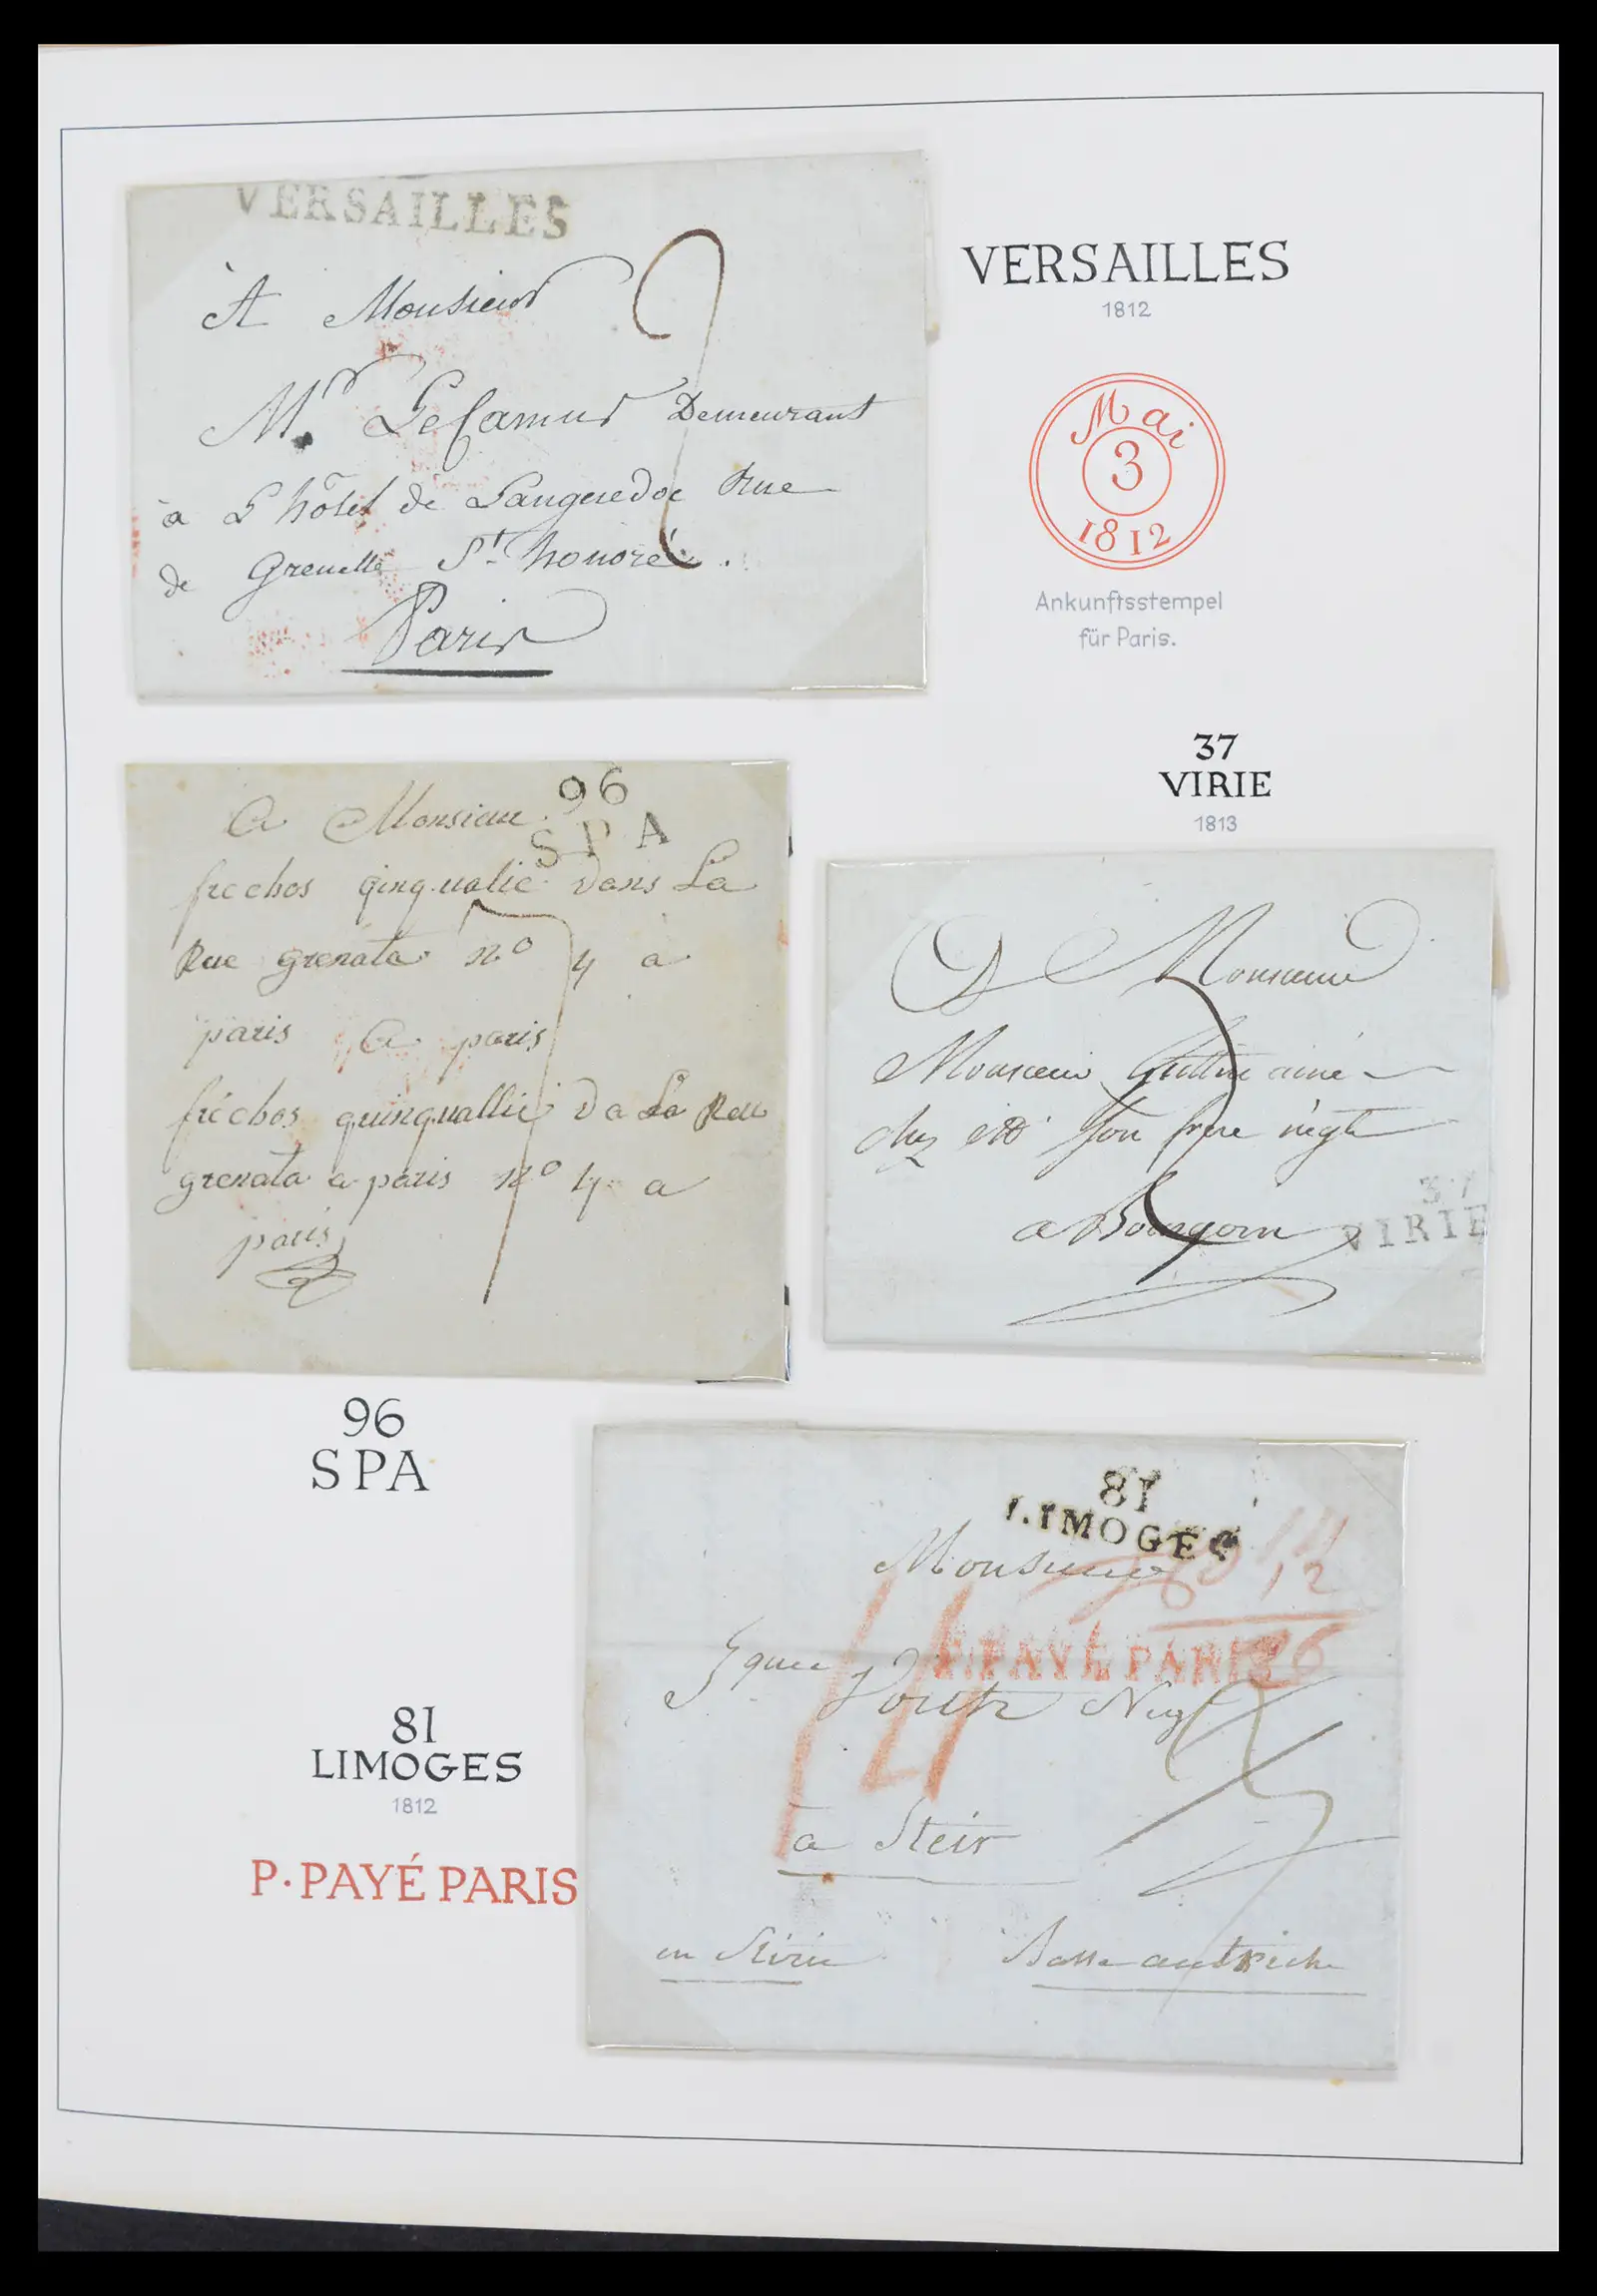 VERSAILLES
À Monsieur
Mr. LeCamus Demeurant
à L'hôtel de Languedoc Rue
de Grenelle St. honoré.
Paris
VERSAILLES
1812
Mai
3
1812
Ankunftsstempel
für Paris.
96
SPA
A Monsieur
frechos qinqualie dans La
Rue grenata no 4 a
paris A paris
fréchos quinquallie da La Rue
grenata a paris no 4 a
paris
7
96
SPA
37
VIRIE
1813
A Monsieur
Monsieur ainé
chez Mr son frere négt
a Bourgoin
37
VIRIE
81
LIMOGES
1812
P.PAYÉ PARIS
81
LIMOGES
Monsieur
12
26
P.PAYÉ PARIS
14
Negt
à Steir
en Stirie Basse autriche